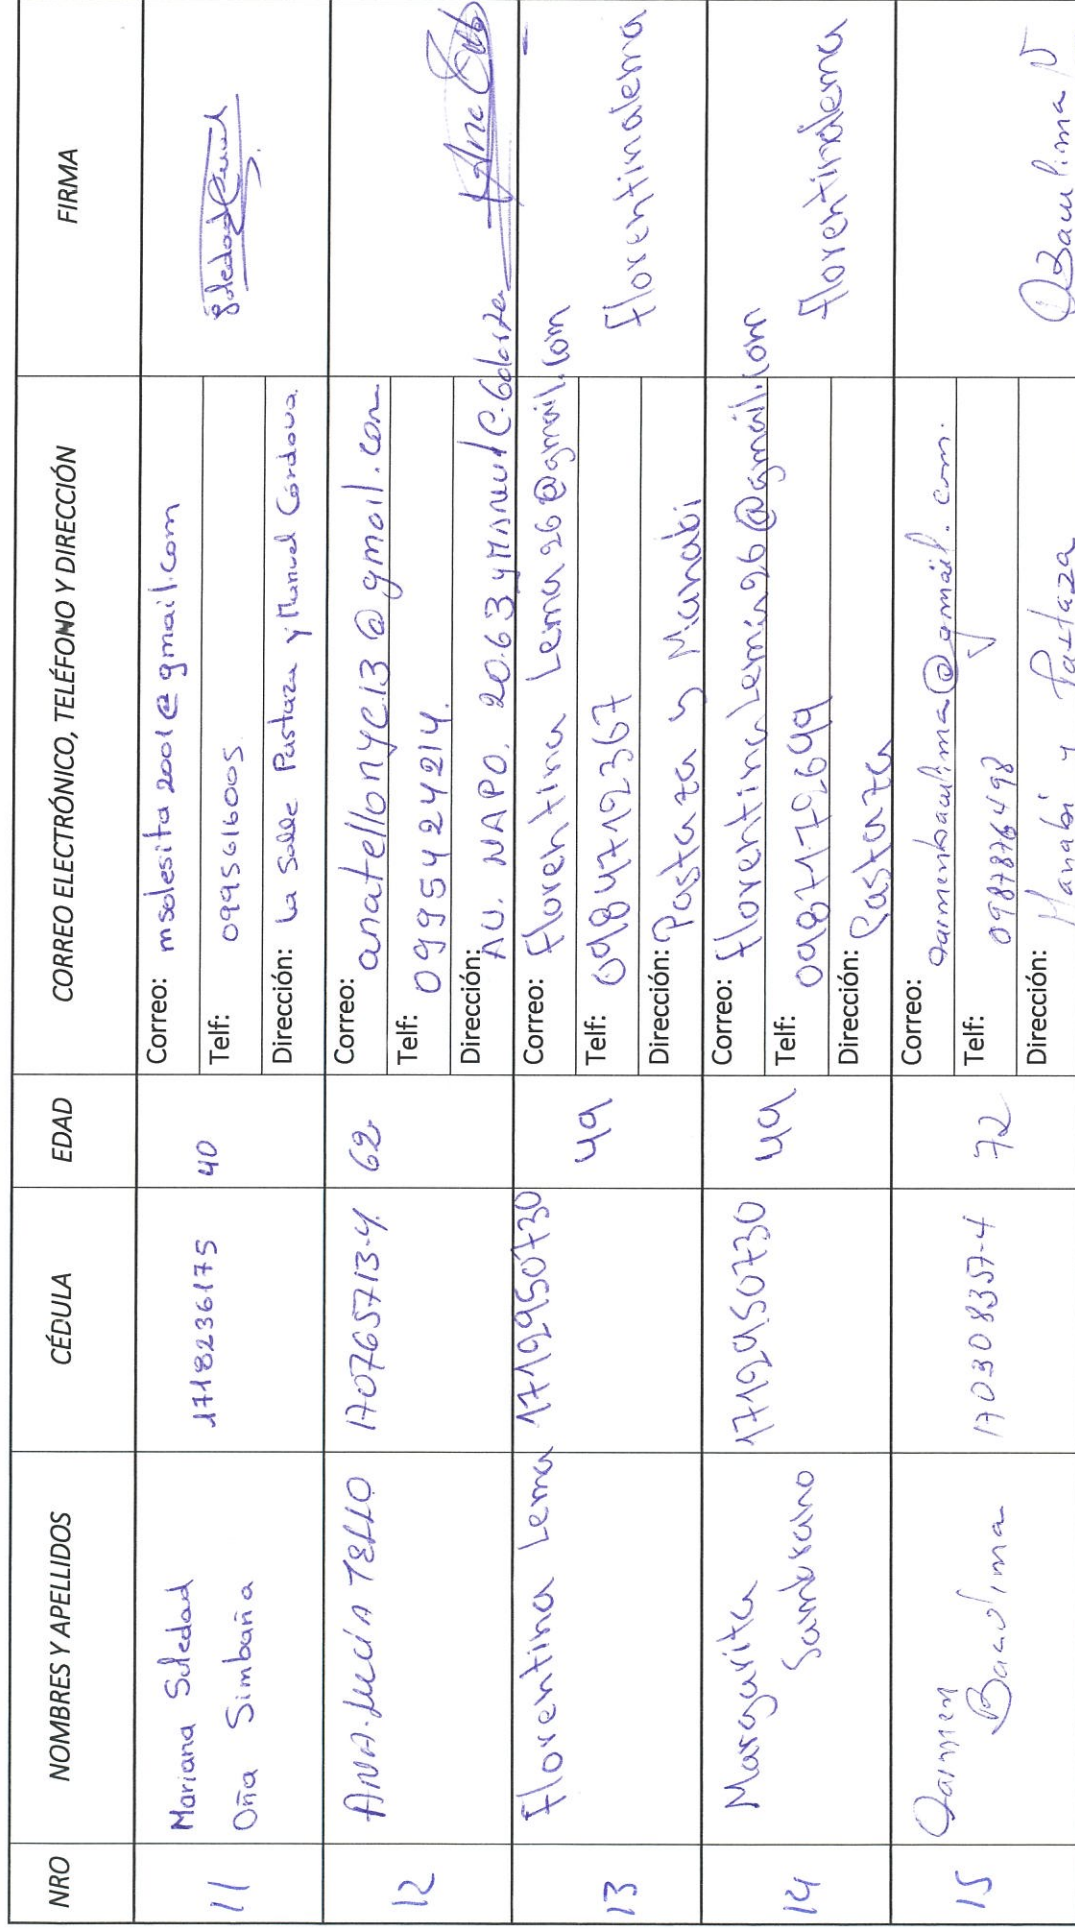 NRO NOMBRES Y APELLIDOS CÉDULA EDAD CORREO ELECTRÓNICO, TELÉFONO Y DIRECCIÓN FIRMA
11 Mariana Soledad
Oña Simbaña
1718236175
40
Correo: msolesita2001@gmail.com
Telf: 0995616005
Dirección: La Salle Pastaza y Manuel Córdova
12 ANA-LUCÍA TELLO
170765713-4
62
Correo: anatellonyc13@gmail.com
Telf: 0995424214.
Dirección: AU. NAPO. 20.63 y Manuel C.
13 Florentina Lema
1712950730
49
Correo: Florentina Lema26@gmail.com
Telf: 0984712367
Dirección: Pastaza y Manabi
Florentinalema
14 Margarita
Sambrano
1712950730
49
Correo: florentinaLema26@gmail.com
Telf: 0987172699
Dirección: Pastaza
Florentinalema
15 Carmen
Baculima
170308357-4
72
Correo: carmenbaculima@gmail.com.
Telf: 0987876498
Dirección: Manabi y Pastaza
CBaculima N